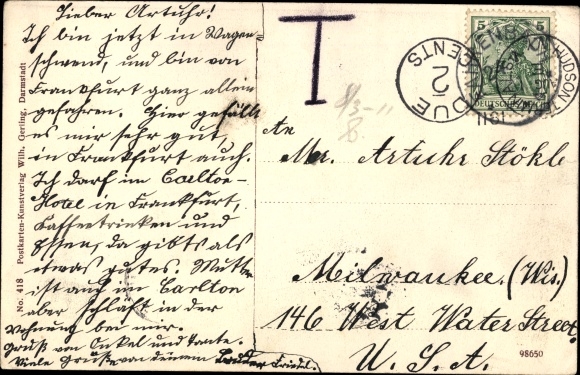 Lieber Artuhr!
Ich bin jetzt in Wagen-
schwend, und bin von
Frankfurt ganz allein
gefahren. Hier gefällt
es mir sehr gut,
in Frankfurt auch.
Ich darf im Carlton-
Hotel in Frankfurt,
Kaffeetrinken und
Essen, da gibts als
etwas gutes. Mutter
ist auch im Carlton
aber schläft in der
Wohnung bei mir.
Gruß von Onkel und Tante.
Viele Grüße von deinem Bruder Friedel.
No. 418 Postkarten-Kunstverlag Wilh. Gerling, Darmstadt
T
DUE
2
CENTS
5 5
DEUTSCHES REICH
HUDSON
An
Mr. Artuhr Stökle
Milwaukee. (Wis.)
146 West Water Street.
U. S. A.
98650